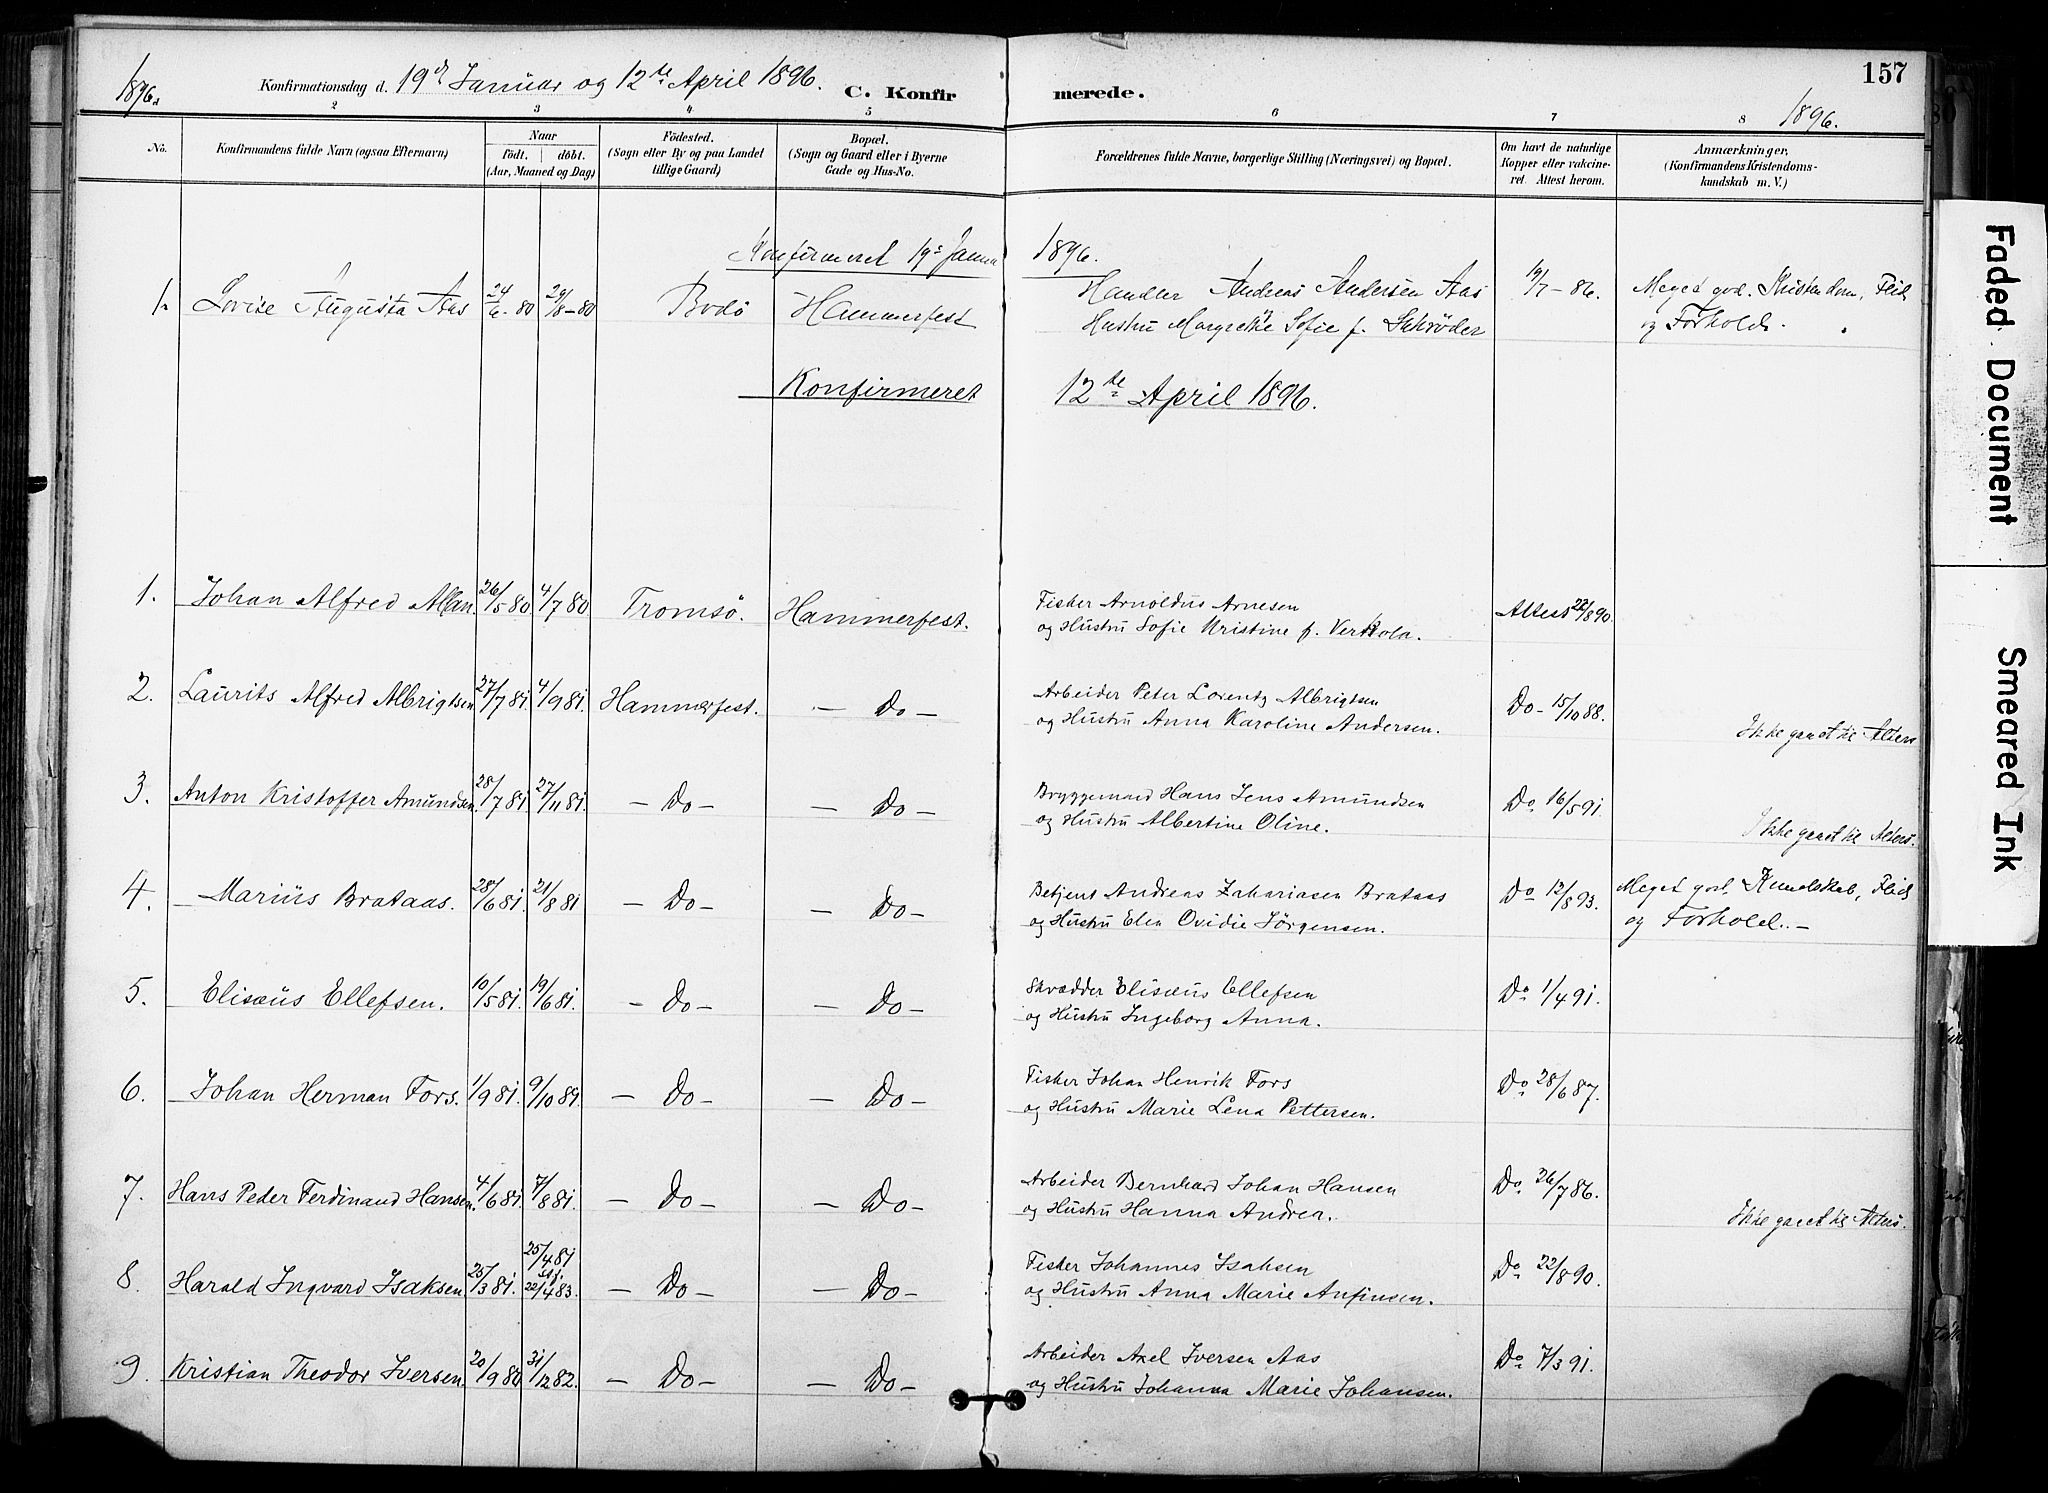 157
1896.
Konfirmationsdag d. 19de Januar og 12te April 1896.
C. Konfirmerede.
1896.
2 3 4 5 6 7 8
No.
Konfirmandens fulde Navn (ogsaa Efternavn)
Naar
födt. döbt.
(Aar, Maaned og Dag)
Födested.
(Sogn eller By og paa Landet
tillige Gaard)
Bopæl.
(Sogn og Gaard eller i Byerne
Gade og Hus-No.
Forældrenes fulde Navne, borgerlige Stilling (Næringsvei) og Bopæl.
Om havt de naturlige
Kopper eller vakcine-
ret. Attest herom.
Anmærkninger,
(Konfirmandens Kristendoms-
kundskab m. V.)
Konfirmeret 19de Januar 1896.
1. Lovise Augusta Aas 24/6-80 29/8-80 Bodö Hammerfest Handler Andreas Andersen Aas 19/7-86. Meget god. Kristendom, Flid
Hustru Margrethe Sofie f. Schrøder og Forhold.
Konfirmeret 12te April 1896.
1. Johan Alfred Allan. 26/5 80 4/7 80 Tromsö. Hammerfest. Fisker Arnoldus Arnesen Attest 22/8 90.
og Hustru Sofie Kristine f. Verkola.
2. Laurits Alfred Albrigtsen 27/7 81. 4/9 81. Hammerfest. — Do — Arbeider Peter Lorentz Albrigtsen Do - 15/10 88.
og Hustru Anna Karoline Andersen. Ikke gaaet til Alters
3. Anton Kristoffer Amundsen. 28/7 81. 27/11 81. — Do — — Do — Bryggemand Hans Jens Amundsen Do 16/5 91.
og Hustru Albertine Oline. Ikke gaaet til Alters.
4. Marius Brataas. 28/6 81. 21/8 81 — Do — — Do — Betjent Andreas Zahariasen Brataas Do 12/8 93. Meget god Kundskab, Flid
og Hustru Elen Ovidie Jörgensen. og Forhold. —
5. Elisæus Ellefsen. 10/5 81. 19/6 81. — Do — — Do — Skrædder Elisæus Ellefsen Do 1/4 91.
og Hustru Ingeborg Anna.
6. Johan Herman Fors. 1/9 81. 9/10 81. — Do — — Do — Fisker Johan Henrik Fors Do 28/6 87.
og Hustru Marie Lena Pettersen.
7. Hans Peder Ferdinand Hansen. 4/6 81. 7/8 81. — Do — — Do — Arbeider Bernhard Johan Hansen Do 26/7 86.
og Hustru Hanna Andrea. Ikke gaaet til Alters.
8. Harald Ingvard Isaksen. 25/3 81. 25/4 81 22/4 83. — Do — — Do — Fisker Johannes Isaksen Do 22/8 90.
og Hustru Anna Marie Anfinsen.
9. Kristian Theodor Iversen. 20/9 80 31/12 82. — Do — — Do — Arbeider Axel Iversen Aas Do 7/3 91.
og Hustru Johanna Marie Johansen.
Faded Document
Smeared Ink